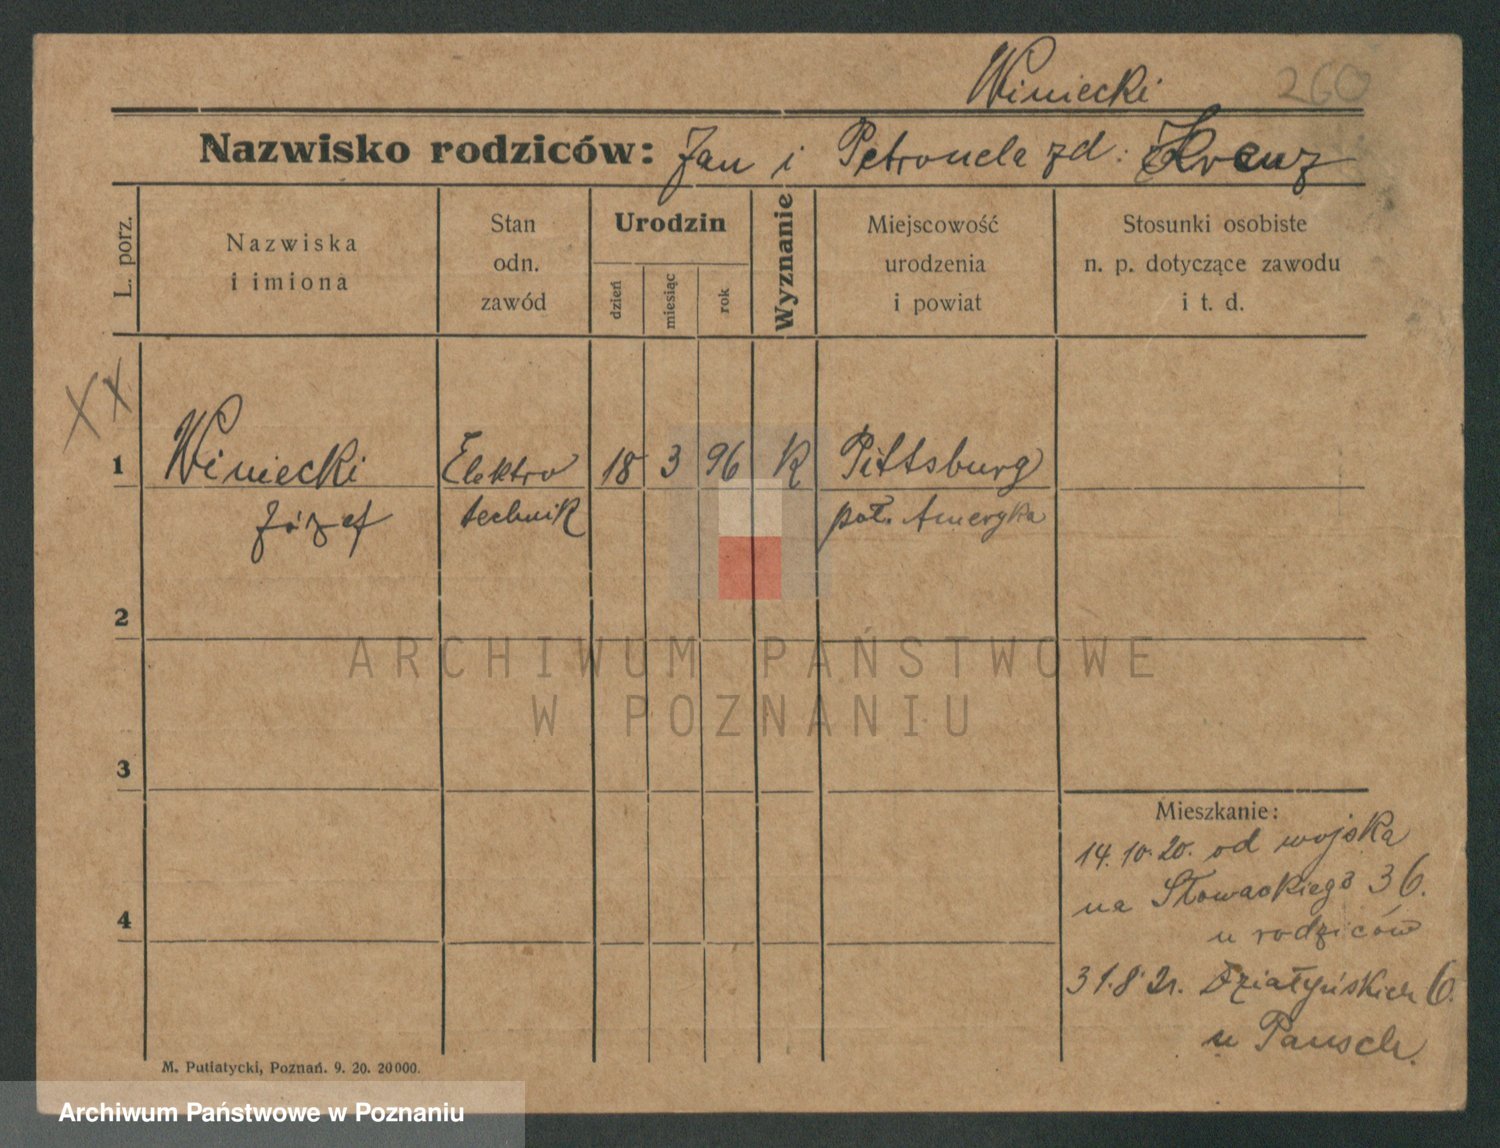 Winiecki 260
Nazwisko rodziców: Jan i Petronela zd: Kreuz
L. porz.
Nazwiska
i imiona
Stan
odn.
zawód
Urodzin
dzień
miesiąc
rok
Wyznanie
Miejscowość
urodzenia
i powiat
Stosunki osobiste
n. p. dotyczące zawodu
i t. d.
XX
1 Winiecki Elektro 18 3 96 K Pittsburg
Józef technik pół. Ameryka
2
ARCHIWUM PAŃSTWOWE
W POZNANIU
3
Mieszkanie:
14.10.20. od wojska
na Słowackiego 36.
u rodziców
4
31.8 21. Działyńskich 6.
u Pausch.
M. Putiatycki, Poznań. 9. 20. 20000.
Archiwum Państwowe w Poznaniu